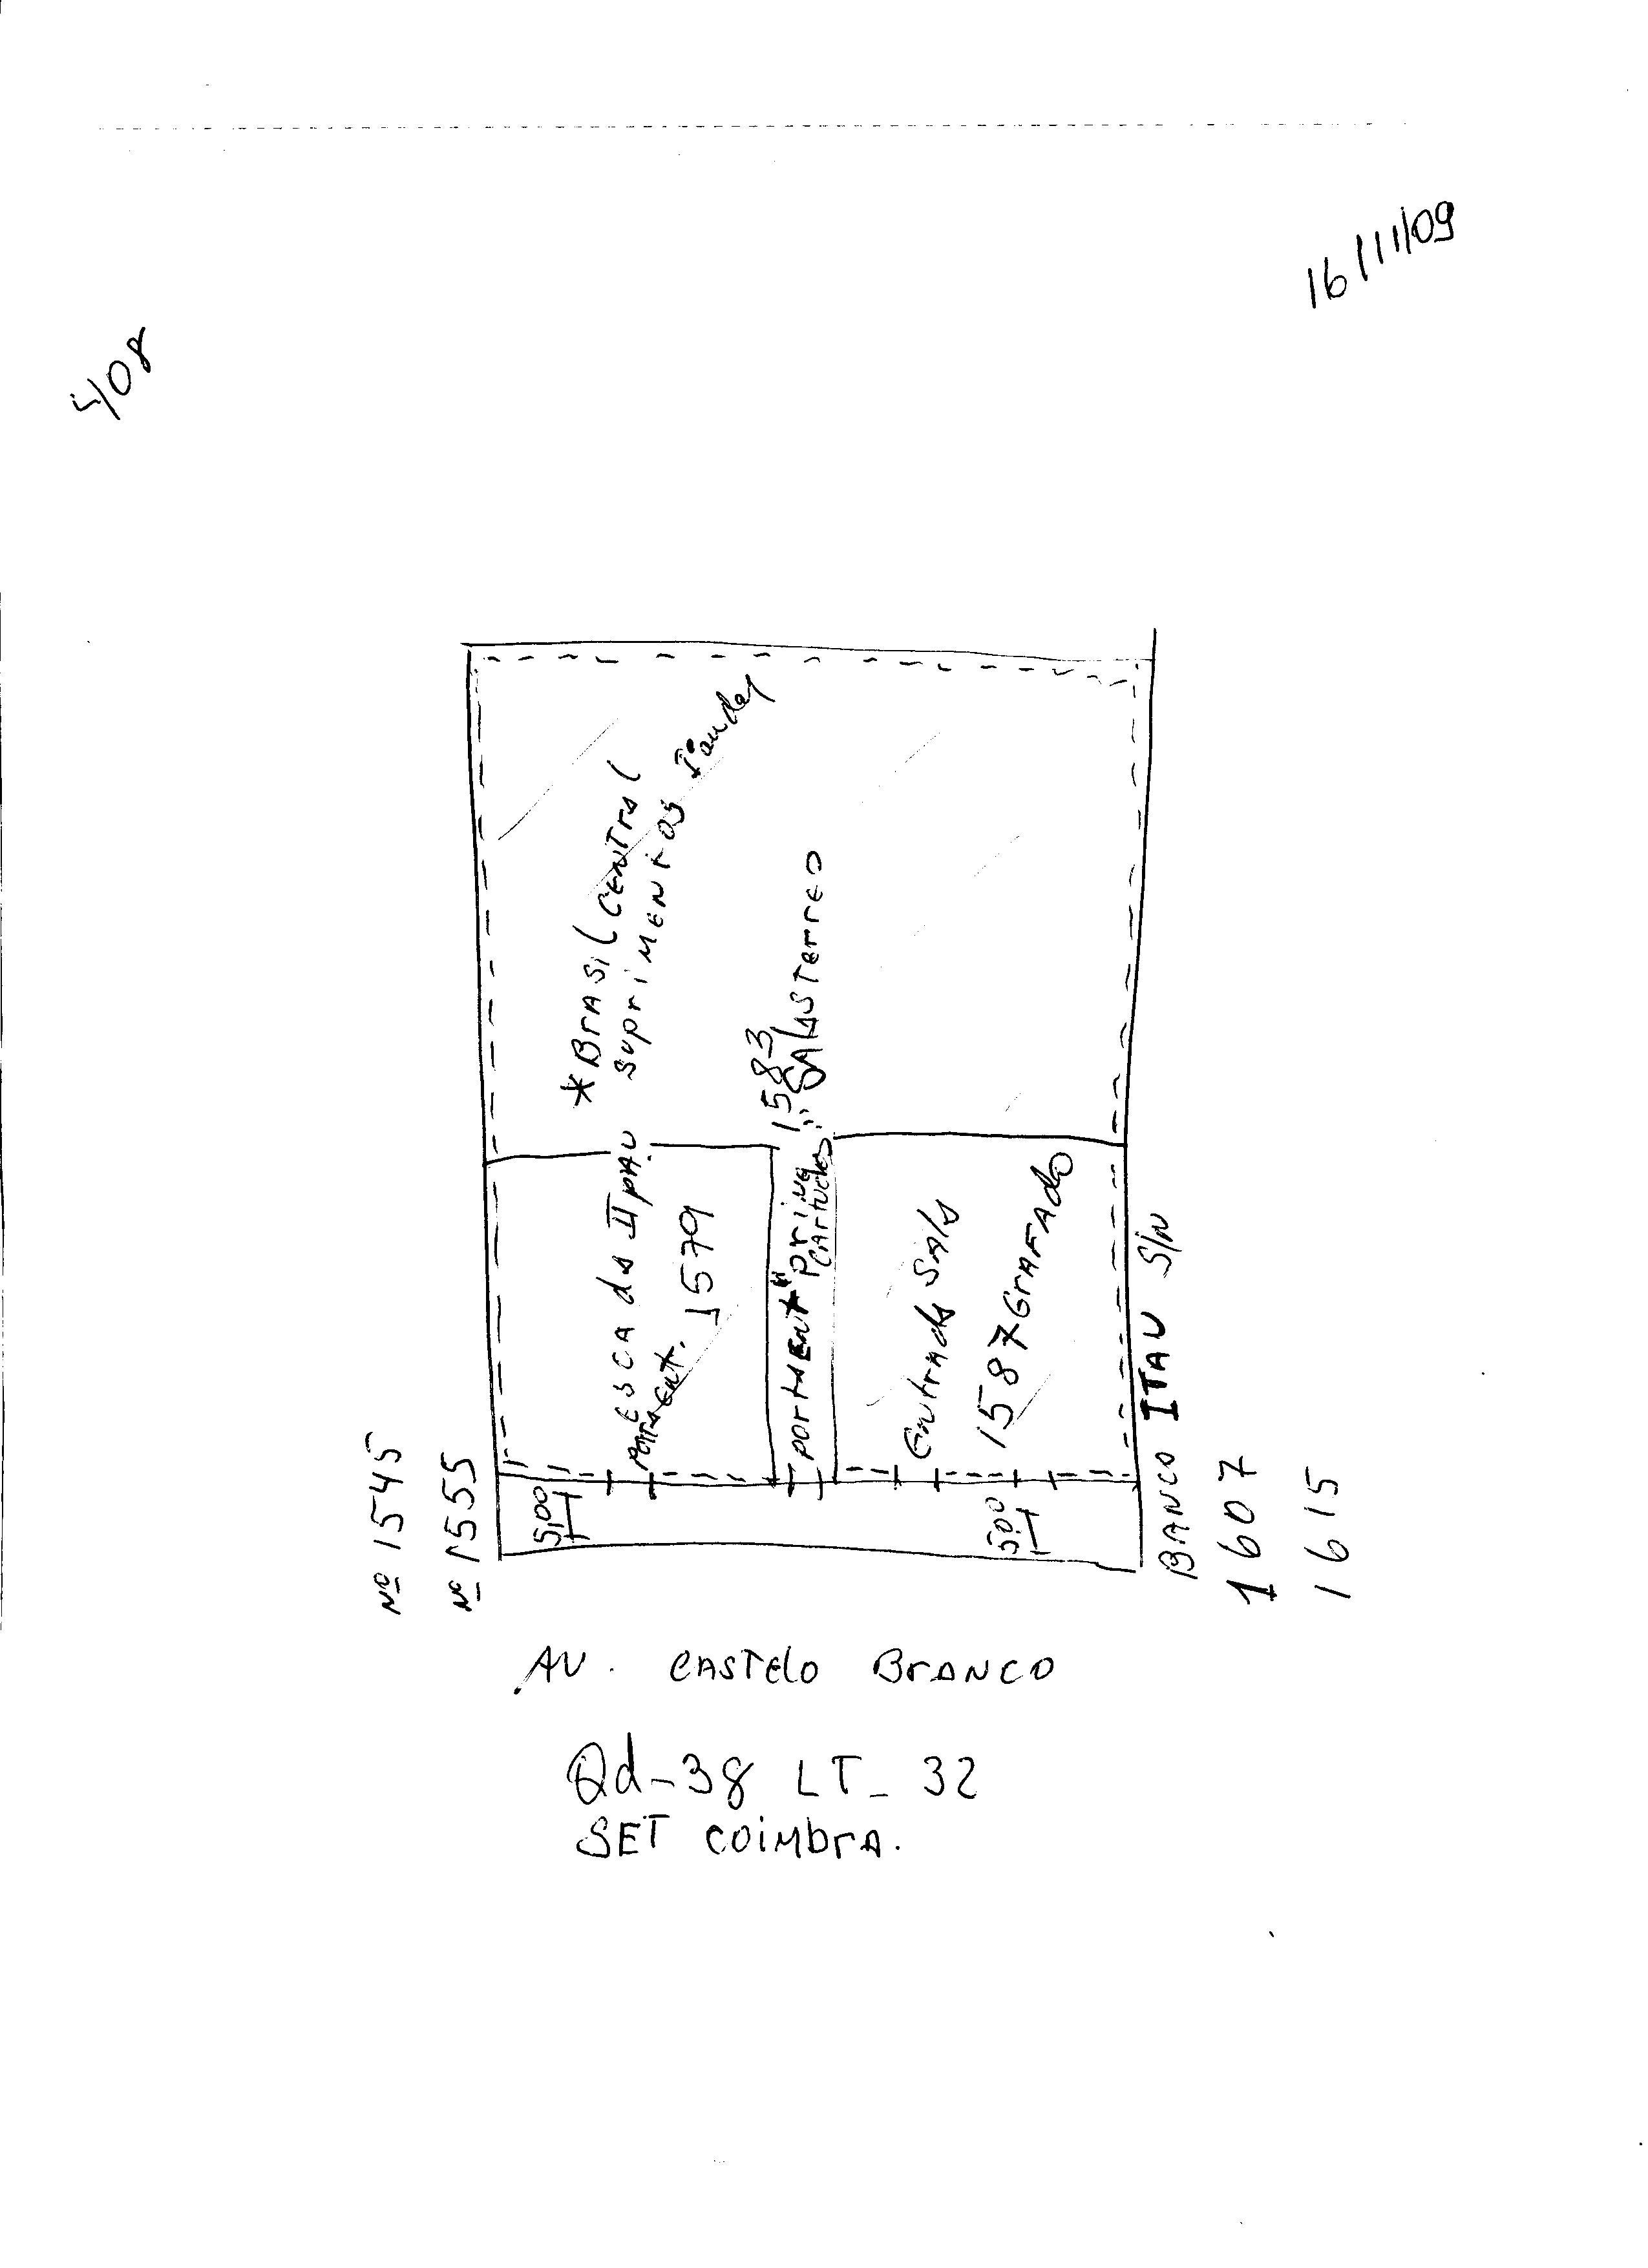 16/11/09
408
*BrASil CENTrAl
suprimENtos Iºandar
1583
SALASTErrEO
EsCAdA II pAV
portAENt.
1579
portAENt"
pring
CArtuchos
EntrAdA SAlA
1587 GrAFAdo
5,00
5,00
Nº 1545
Nº 1555
BANCO ITAU S/N
1607
1615
AV. CASTElO BrANCO
Qd-38 LT-32
SET COiMbrA.